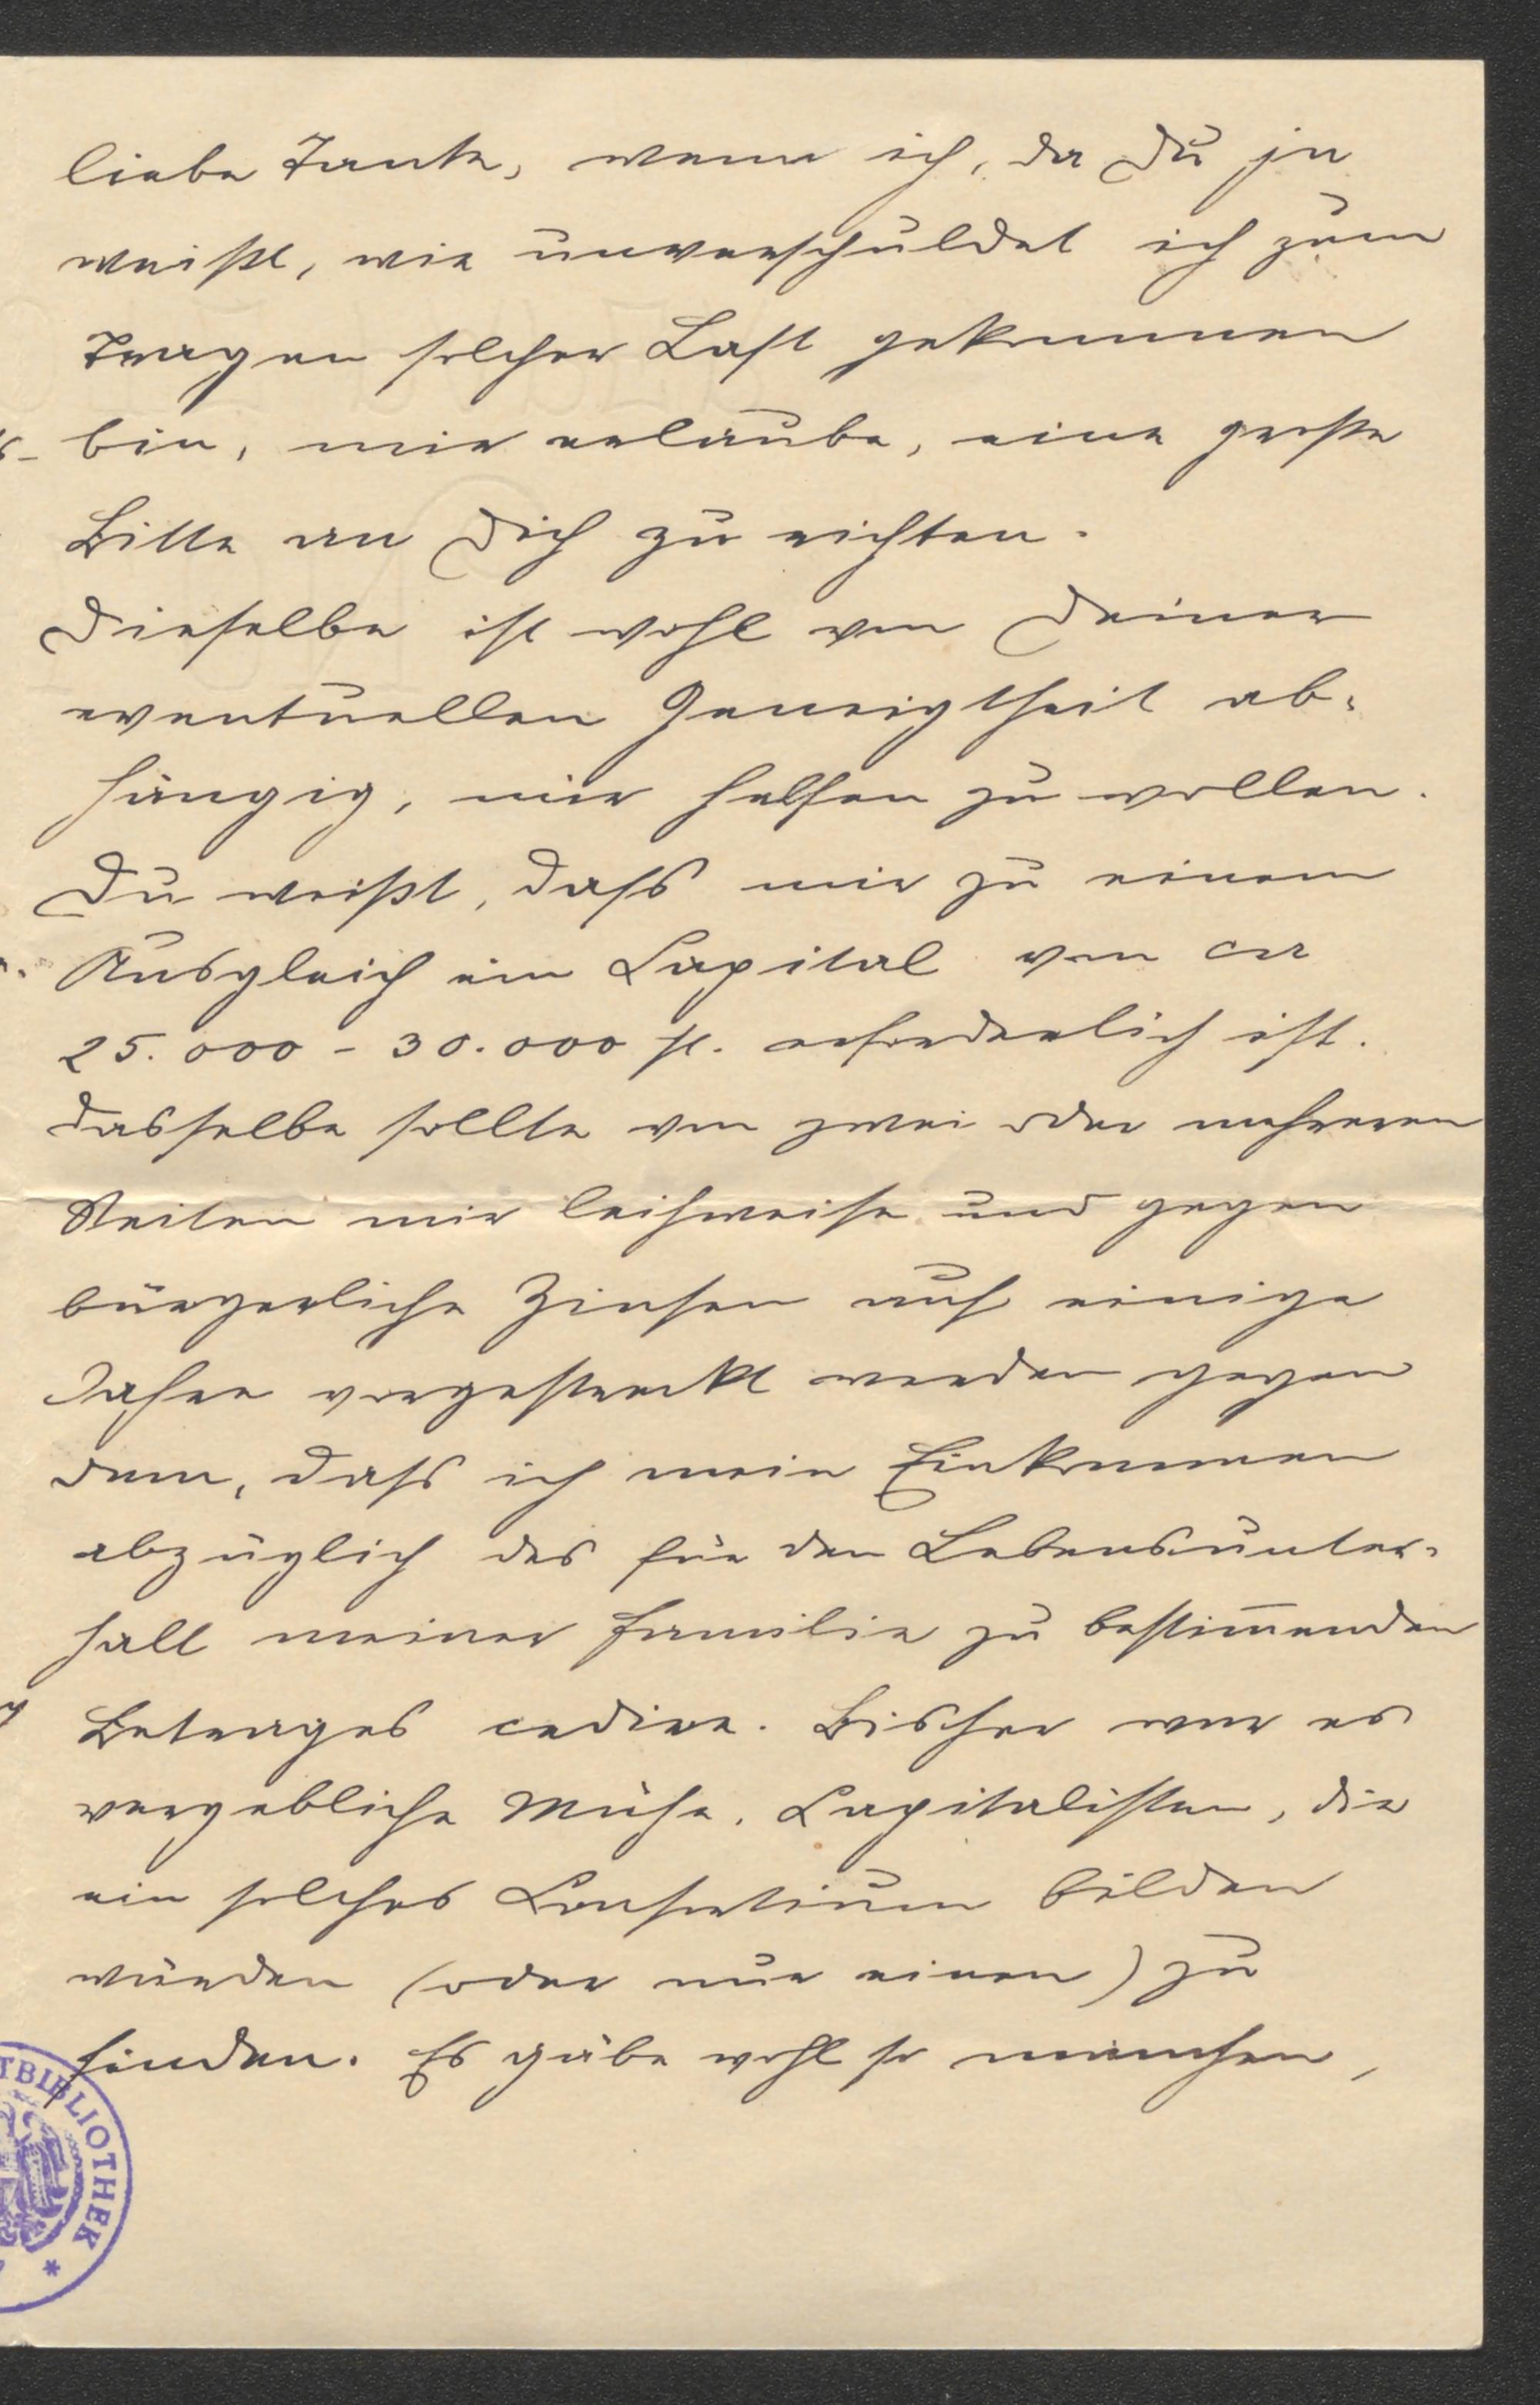 liebe Tante, wenn ich, da Du ja
weißt, wie unverschuldet ich zum
Tragen solcher Last gekommen
bin, mir erlaube, eine große
Bitte an Dich zu richten.
Dieselbe ist wohl von Deiner
eventuellen Geneigtheit ab-
hängig, mir helfen zu wollen.
Du weißt, dass mir zu einem
Ausgleich ein Capital von ca
25.000 - 30.000 fl. erforderlich ist.
Dasselbe sollte von zwei oder mehreren
Seiten mir leihweise und gegen
bürgerliche Zinsen auf einige
Jahre vorgestreckt werden gegen
dem, dass ich mein Einkommen
abzüglich des für den Lebensunter-
halt meiner Familie zu bestim̅enden
Betrages cedire. Bisher war es
vergebliche Mühe, Capitalisten, die
ein solches Consortium bilden
würden (oder nur einen) zu
finden. Es gäbe wohl so manchen,
TBIBLIOTHEK *